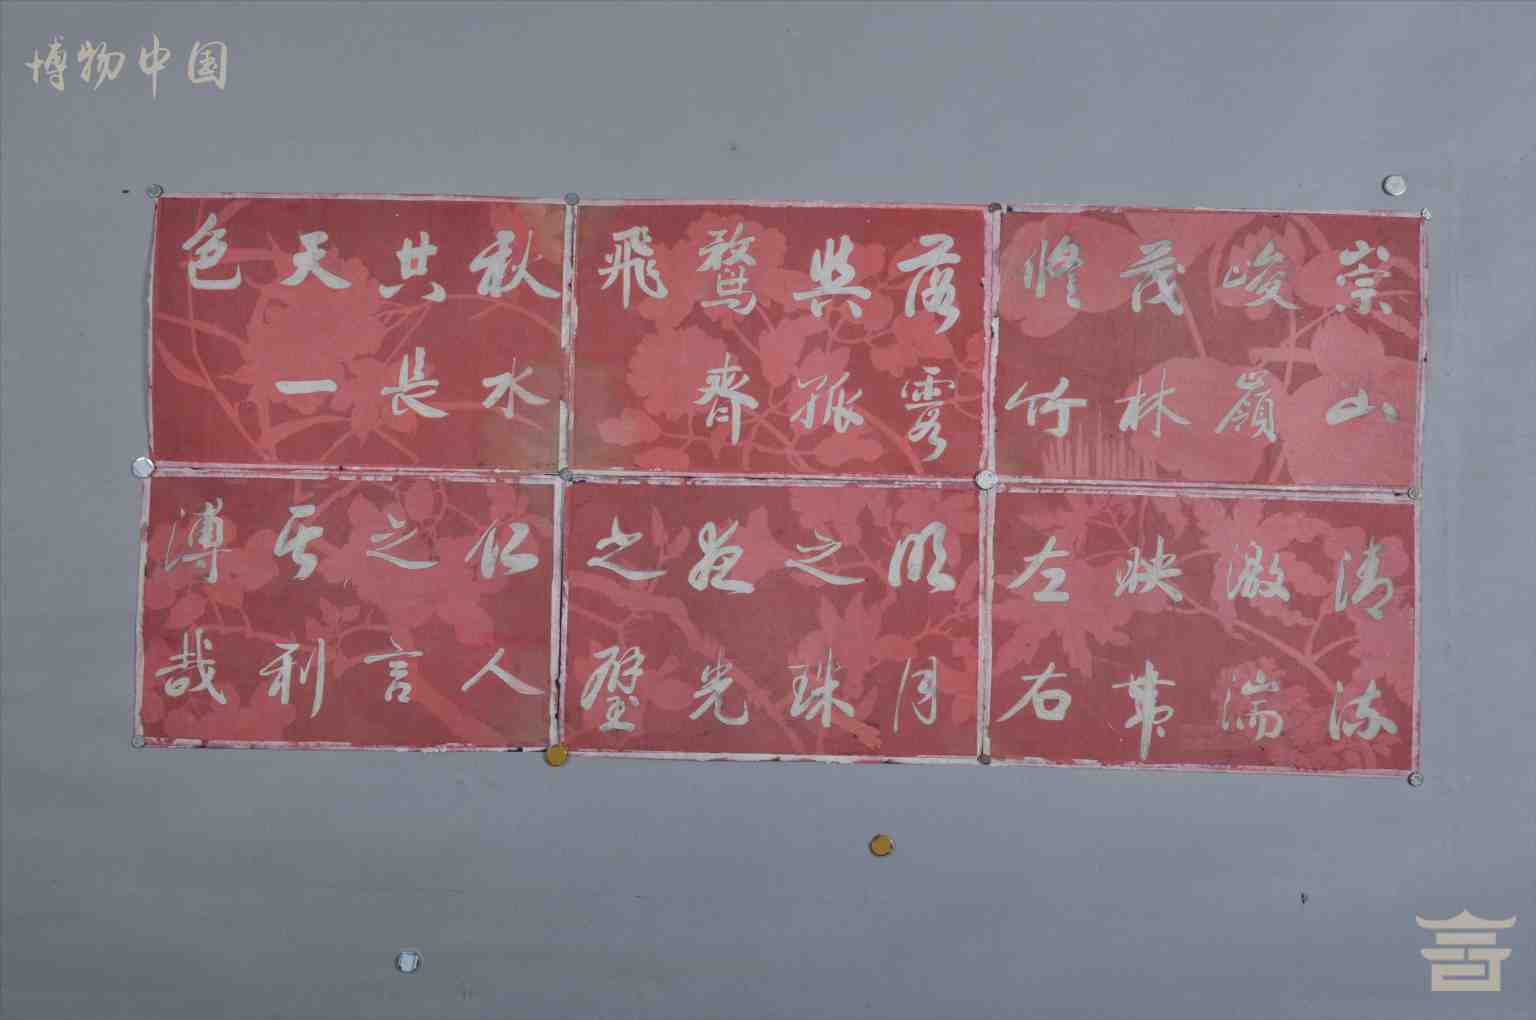 博物中国
崇山
峻嶺
茂林
修竹
落霞
與孤
鶩齊
飛
秋水
共長
天一
色
清流
激湍
映帶
左右
明月
之珠
夜光
之璧
仁人
之言
其利
溥哉